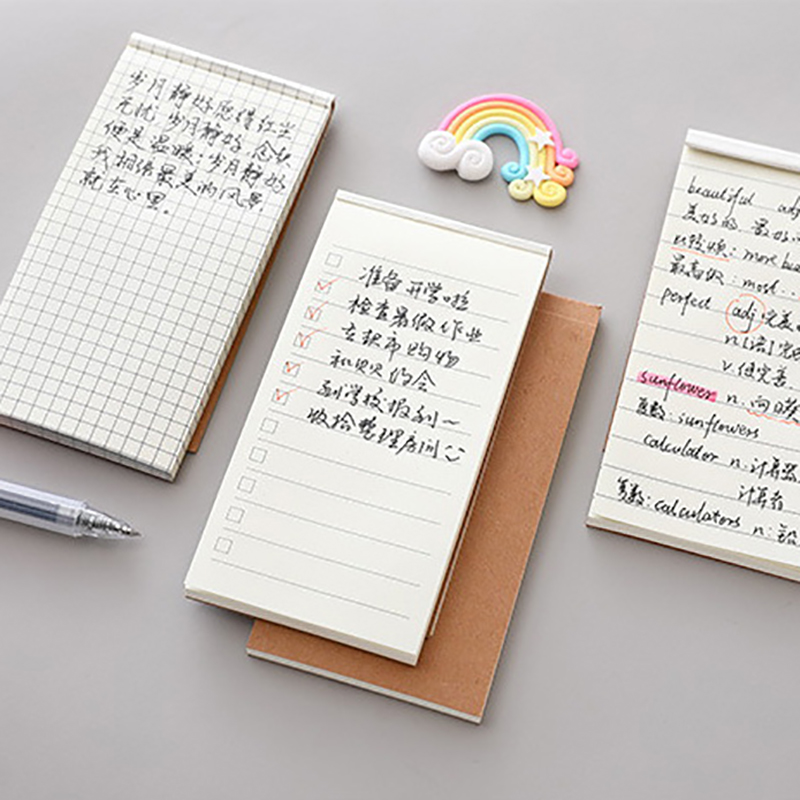 岁月静好愿得红尘
无忧,岁月静好,念起
便是温暖;岁月静好
我相信最美的风景
就在心里。
准备开学啦
检查暑假作业
去超市购物
和贝贝约会
到学校报到~
收拾整理房间
beautiful adj
美好的 最好
比较级: more bea
最高级: most..
perfect adj 完美
n.[语]完
v.使完善
sunflower n. 向日葵
复数: sunflowers
calculator n.计算器
计算者
复数: calculators n: